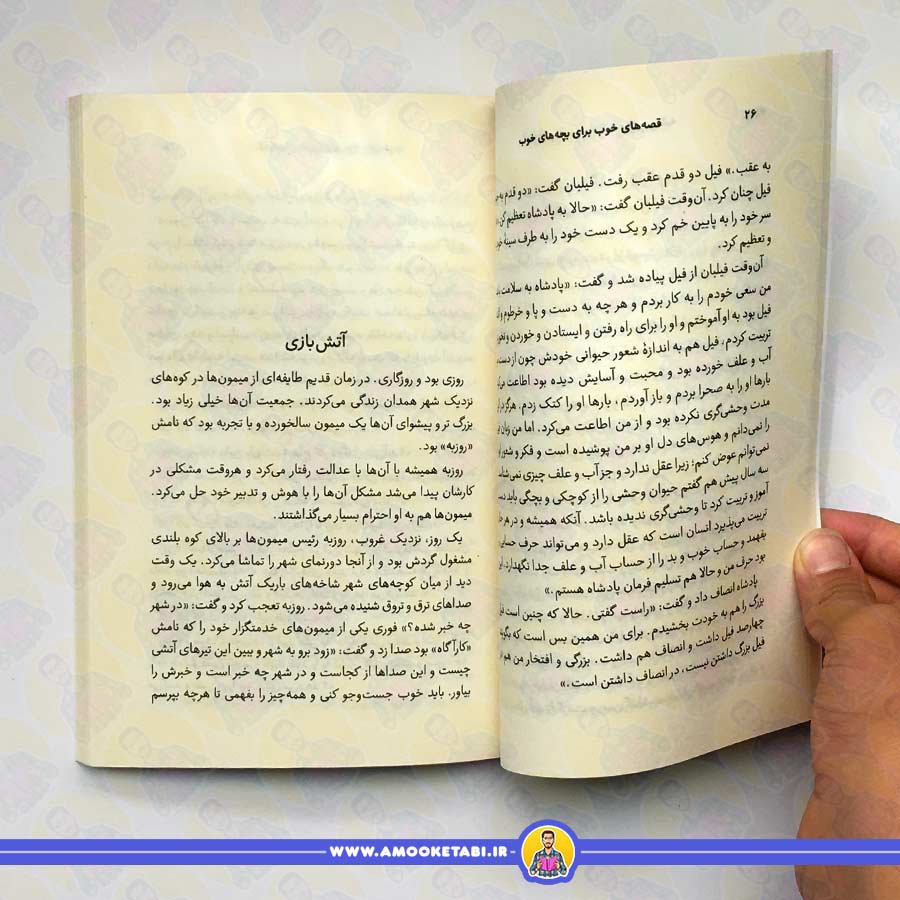 ۲۶
قصه‌های خوب برای بچه‌های خوب
به عقب.» فیل دو قدم عقب رفت. فیلبان گفت: «دو قدم به
فیل چنان کرد. آن‌وقت فیلبان گفت: «حالا به پادشاه تعظیم کن.»
سر خود را به پایین خم کرد و یک دست خود را به طرف سینهٔ
و تعظیم کرد.
آن‌وقت فیلبان از فیل پیاده شد و گفت: «پادشاه به سلامت
من سعی خودم را به کار بردم و هر چه به دست و پا و خرطوم و
فیل بود به او آموختم و او را برای راه رفتن و ایستادن و خوردن و
تربیت کردم، فیل هم به اندازهٔ شعور حیوانی خودش چون از دست
آب و علف خورده بود و محبت و آسایش دیده بود اطاعت
بارها او را به صحرا بردم و باز آوردم، بارها او را کتک زدم. هرگز در
مدت وحشی‌گری نکرده بود و از من اطاعت می‌کرد. اما من زبان
را نمی‌دانم و هوس‌های دل او بر من پوشیده است و فکر و
نمی‌توانم عوض کنم؛ زیرا عقل ندارد و جز آب و علف چیزی
سه سال پیش هم گفتم حیوان وحشی را از کوچکی و بچگی باید
آموز و تربیت کرد تا وحشی‌گری ندیده باشد. آنکه همیشه و در هر
تربیت می‌پذیرد انسان است که عقل دارد و می‌تواند حرف
بفهمد و حساب خوب و بد را از حساب آب و علف جدا نگهدارد.
بود حرف من و حالا هم تسلیم فرمان پادشاه هستم.»
پادشاه انصاف داد و گفت: «راست گفتی. حالا که چنین است
بزرگ را هم به خودت بخشیدم. برای من همین بس است که
چهارصد فیل داشت و انصاف هم داشت. بزرگی و افتخار من هم
فیل بزرگ داشتن نیست، در انصاف داشتن است.»
آتش‌بازی
روزی بود و روزگاری. در زمان قدیم طایفه‌ای از میمون‌ها در کوه‌های
نزدیک شهر همدان زندگی می‌کردند. جمعیت آن‌ها خیلی زیاد بود.
بزرگ‌تر و پیشوای آن‌ها یک میمون سالخورده و با تجربه بود که نامش
«روزبه» بود.
روزبه همیشه با آن‌ها با عدالت رفتار می‌کرد و هروقت مشکلی در
کارشان پیدا می‌شد مشکل آن‌ها را با هوش و تدبیر خود حل می‌کرد.
میمون‌ها هم به او احترام بسیار می‌گذاشتند.
یک روز، نزدیک غروب، روزبه رئیس میمون‌ها بر بالای کوه بلندی
مشغول گردش بود و از آنجا دورنمای شهر را تماشا می‌کرد. یک وقت
دید از میان کوچه‌های شهر شاخه‌های باریک آتش به هوا می‌رود و
صداهای ترق و تروق شنیده می‌شود. روزبه تعجب کرد و گفت: «در شهر
چه خبر شده؟» فوری یکی از میمون‌های خدمتگزار خود را که نامش
«کارآگاه» بود صدا زد و گفت: «زود برو به شهر و ببین این تیرهای آتشی
چیست و این صداها از کجاست و در شهر چه خبر است و خبرش را
بیاور. باید خوب جست‌وجو کنی و همه‌چیز را بفهمی تا هرچه بپرسم
WWW.AMOOKETABI.IR